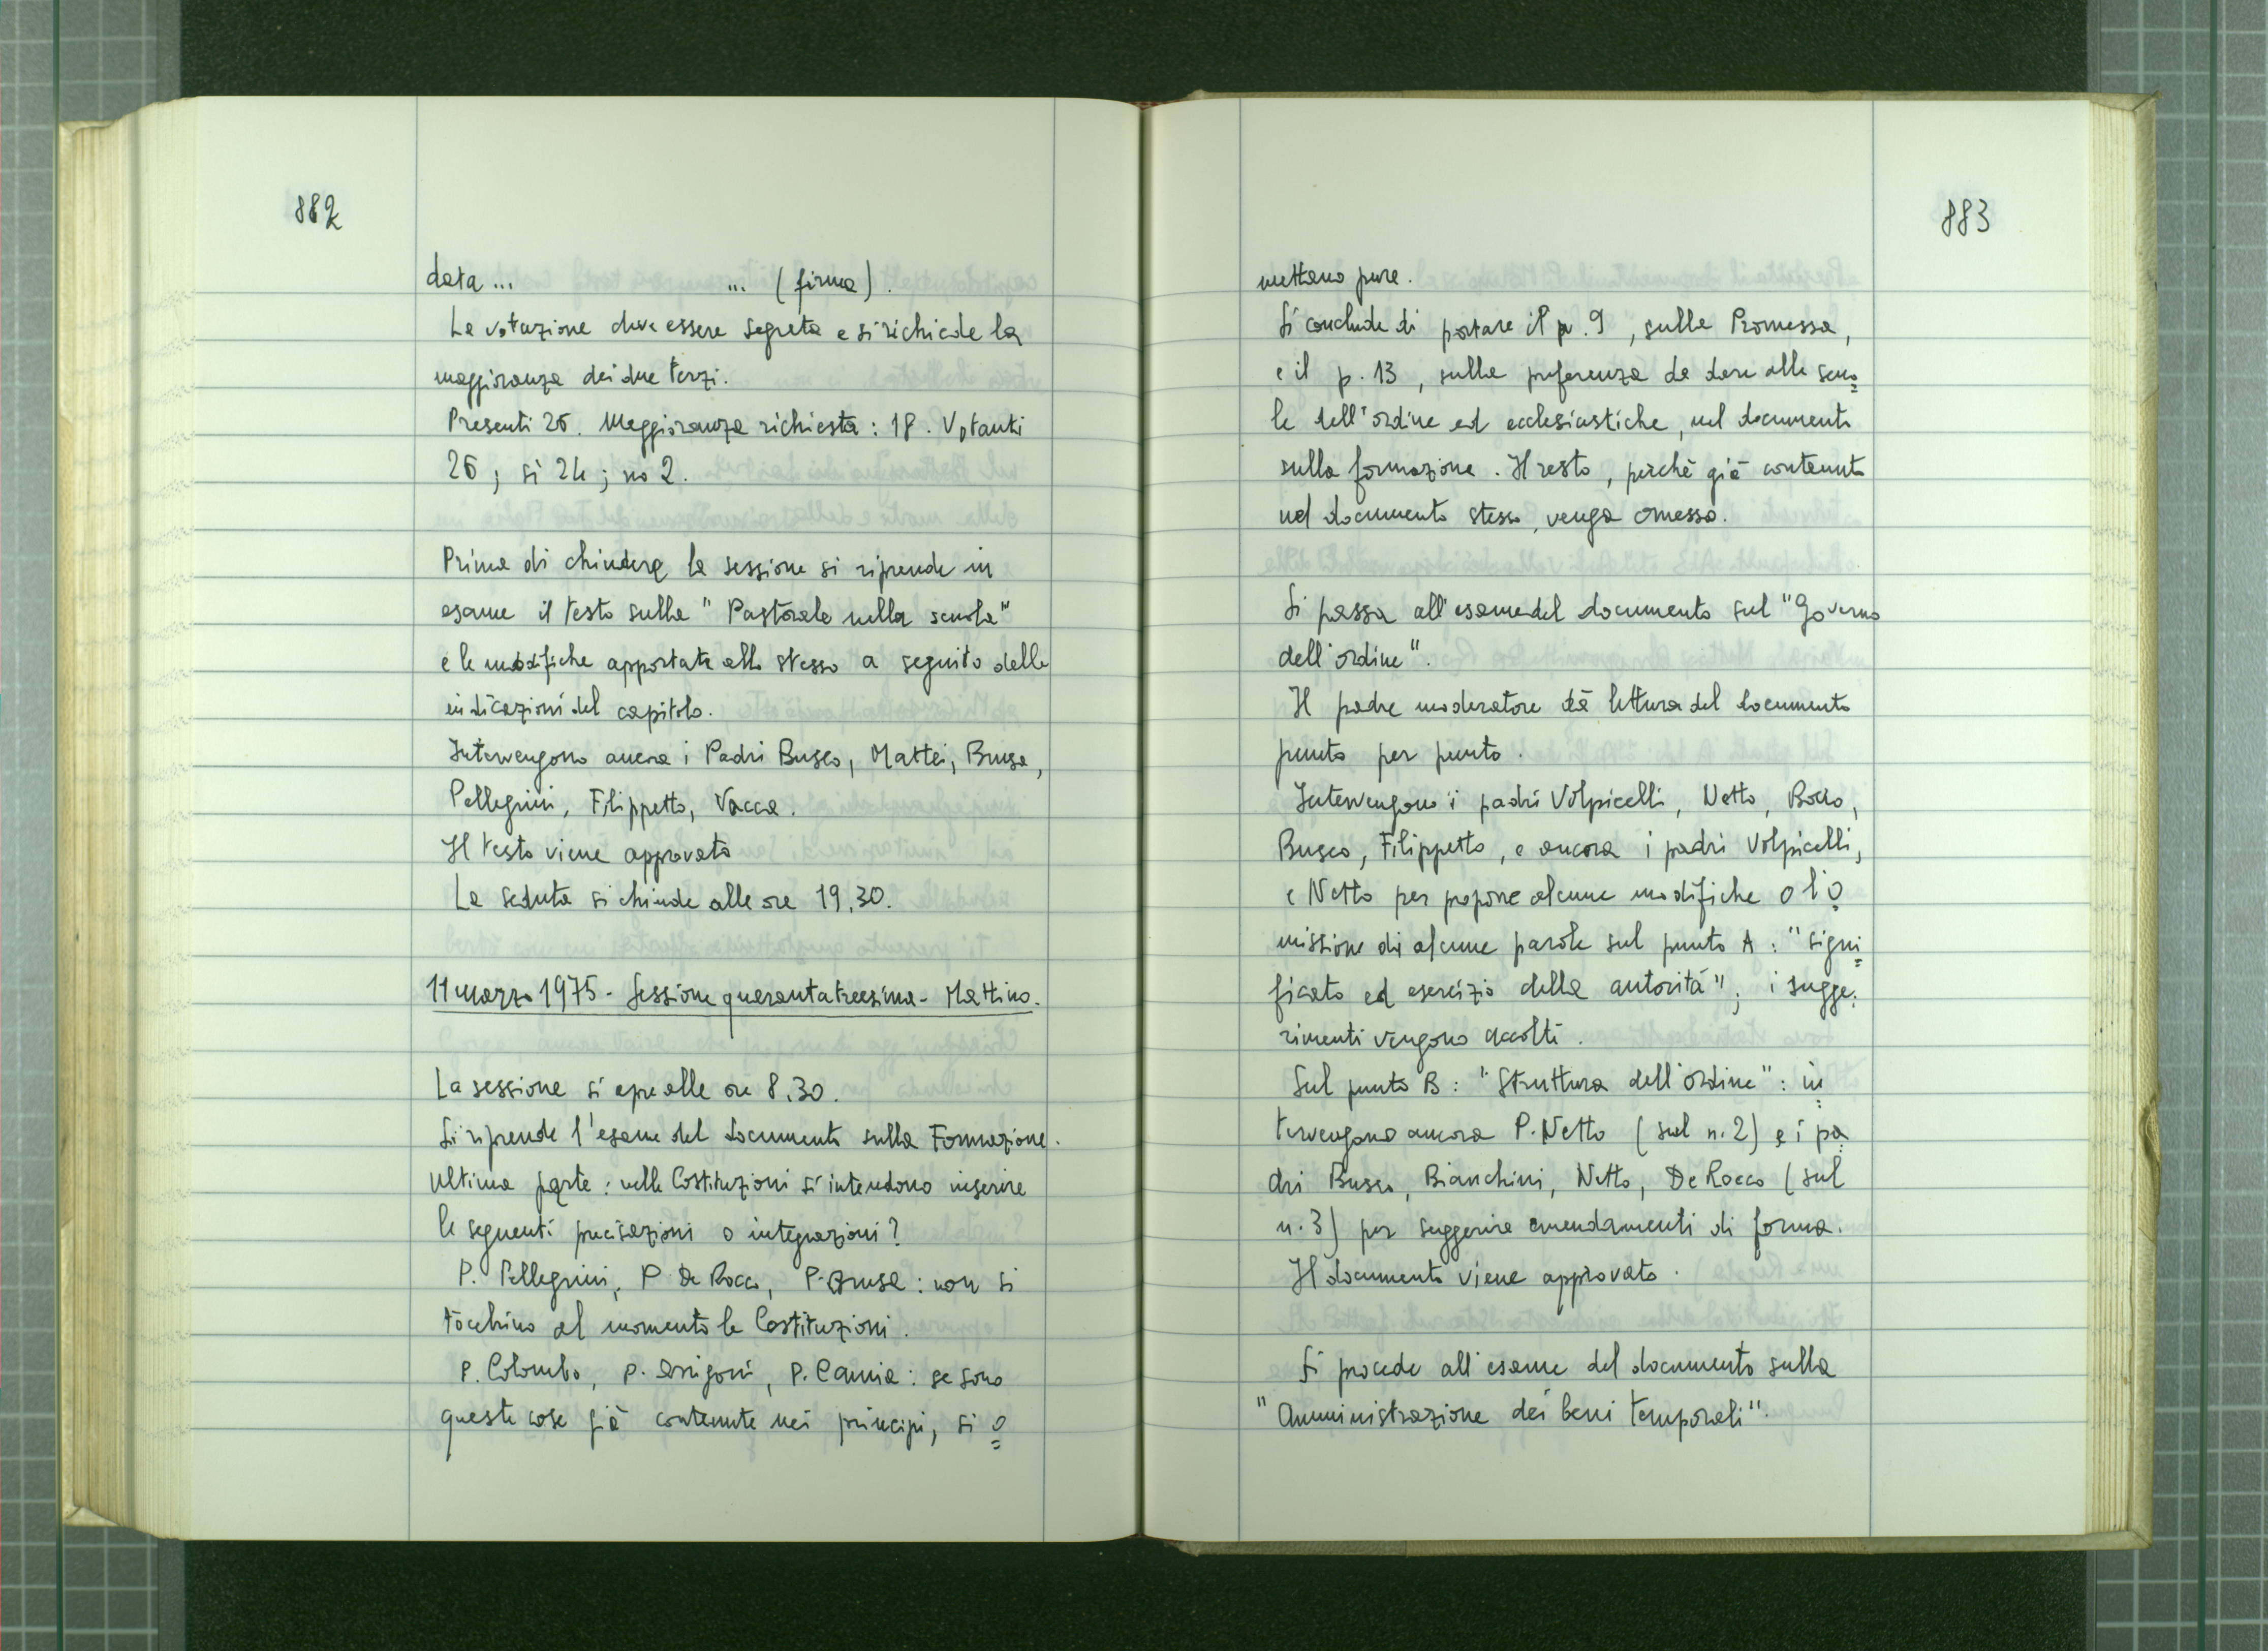 882
data ... ... (firma).
La votazione deve essere segreta e si richiede la
maggioranza dei due terzi.
Presenti 26. Maggioranza richiesta: 18. Votanti
26; sì 24; no 2.
Prima di chiudere la sessione si riprende in
esame il testo sulla "Pastorale nella scuola"
e le modifiche apportate allo stesso a seguito delle
indicazioni del capitolo.
Intervengono ancora i Padri Busco, Mattei, Brusa,
Pellegrini, Filippetto, Vacca.
Il testo viene approvato
La seduta si chiude alle ore 19,30.
11 marzo 1975 - Sessione quarantatreesima - Mattino.
La sessione si apre alle ore 8.30.
Si riprende l'esame del documento sulla Formazione.
Ultima parte: nelle Costituzioni si intendono inserire
le seguenti precisazioni o integrazioni?
P. Pellegrini, P. De Rocco, P. Brusa: non si
tocchino al momento le Costituzioni.
P. Colombo, P. Arrigoni, P. Camia: se sono
queste cose già contenute nei principi, si o=
883
mettano pure.
Si conclude di portare il p. 9, sulla Promessa,
e il p. 13, sulla preferenza da dare alle scuo=
le dell'ordine ed ecclesiastiche, nel documento
sulla formazione. Il resto, perchè già contenuto
nel documento stesso, venga omesso.
Si passa all'esame del documento sul "Governo
dell'ordine".
Il padre moderatore dà lettura del documento
punto per punto.
Intervengono i padri Volpicelli, Netto, Bocco,
Busco, Filippetto, e ancora i padri Volpicelli,
e Netto per proporre alcune modifiche o l'o
missione di alcune parole sul punto A: "signi=
ficato ed esercizio della autorità"; i sugge=
rimenti vengono accolti.
Sul punto B: "Struttura dell'ordine": in=
tervengono ancora P. Netto (sul n. 2) e i pa
dri Busco, Bianchini, Netto, De Rocco (sul
n. 3) per suggerire emendamenti di forma.
Il documento viene approvato.
Si procede all'esame del documento sulla
"Amministrazione dei beni temporali".